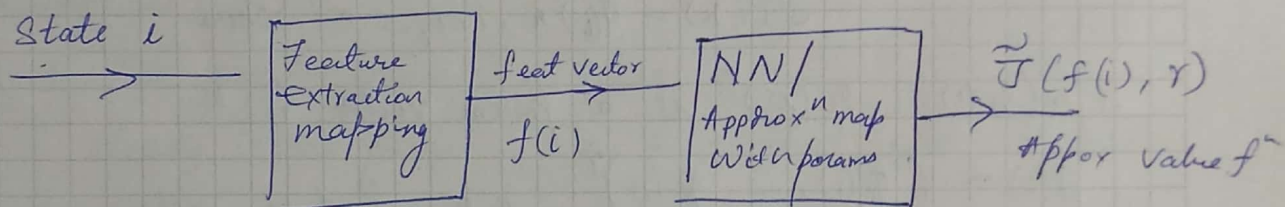 State i
Feature
extraction
mapping
feat vector
f(i)
NN/
Approxⁿ map
With params
J̃ (f(i), r)
Appox value fⁿ